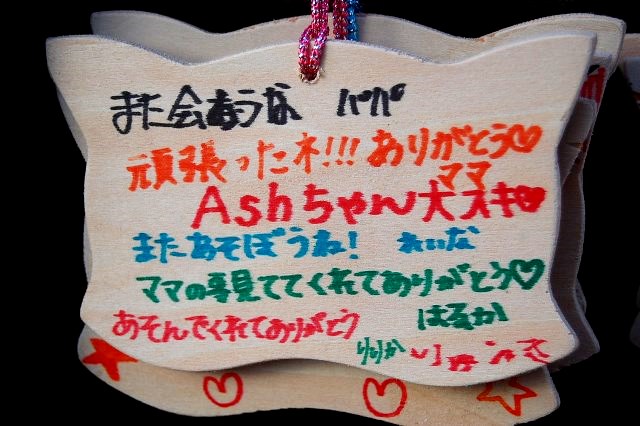 また会おうな パパ
頑張ったネ!!! ありがとう♡
ママ
Ashちゃん大スキ♥
またあそぼうね! れいな
ママの事見ててくれてありがとう♡
はるか
あそんでくれてありがとう
りりか